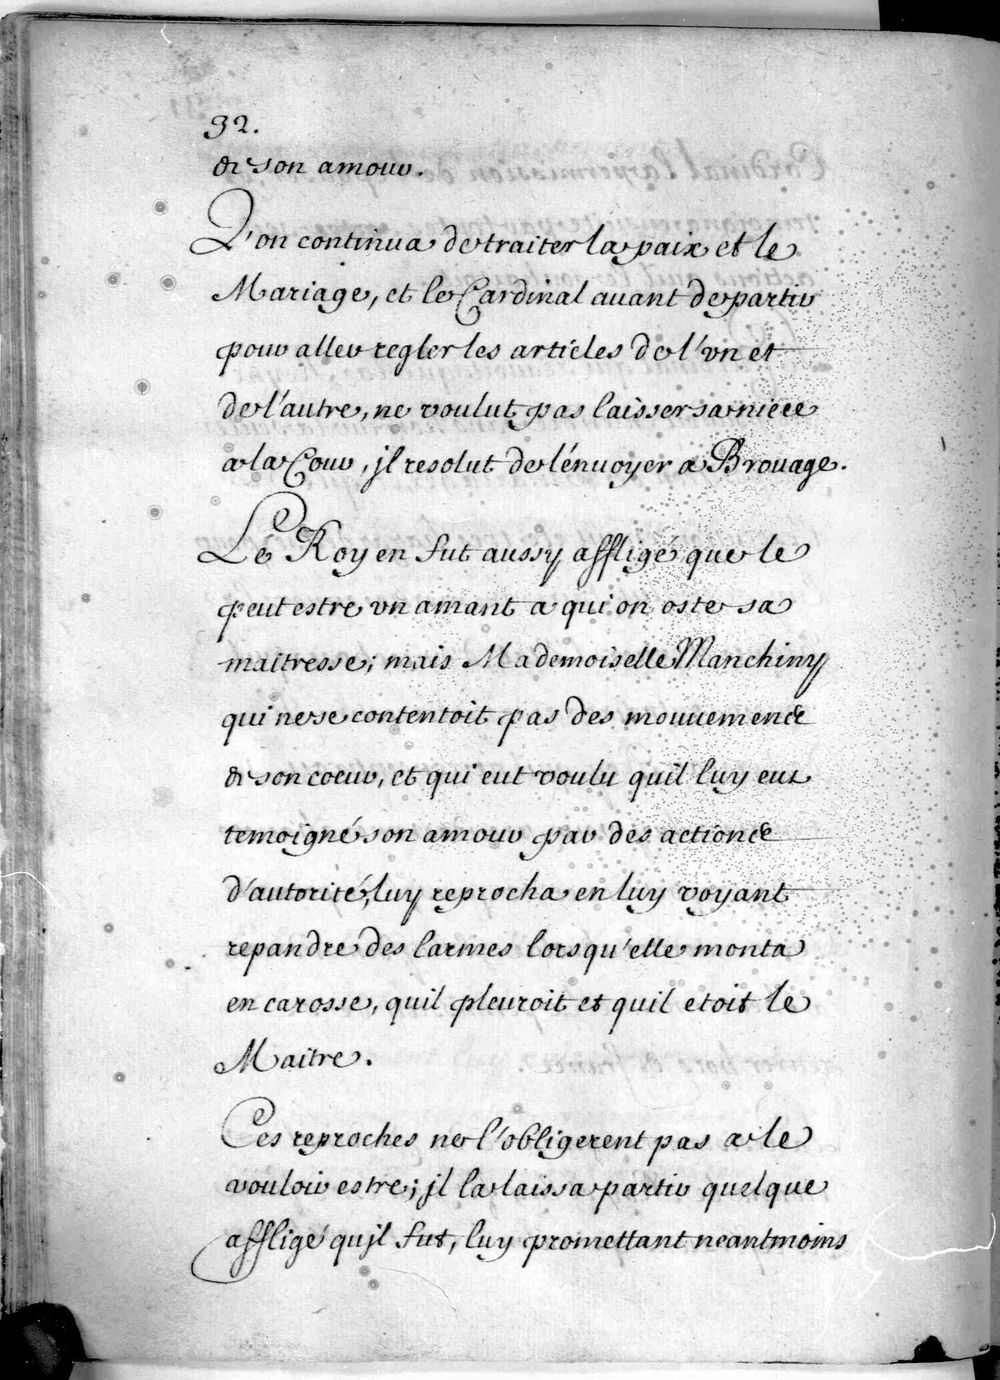 92.
de son amour.
L'on continua de traiter la paix et le
Mariage, et le Cardinal auant de partir
pour aller regler les articles de l'vn et
de l'autre, ne voulut pas laisser sa niece
a la Cour, jl resolut de l'énuoyer a Brouage.
Le Roy en fut aussy affligé que le
peut estre vn amant a qui on oste sa
maitresse; mais Mademoiselle Manchiny
qui ne se contentoit pas des mouuemens
de son coeur, et qui eut voulu quil luy eut
temoigné son amour par des actions
d'autorité, luy reprocha en luy voyant
repandre des larmes lorsqu'elle monta
en carosse, quil pleuroit et quil etoit le
Maitre.
Ces reproches ne l'obligerent pas a le
vouloir estre; jl la laissa partir quelque
affligé qujl fut, luy promettant neantmoins